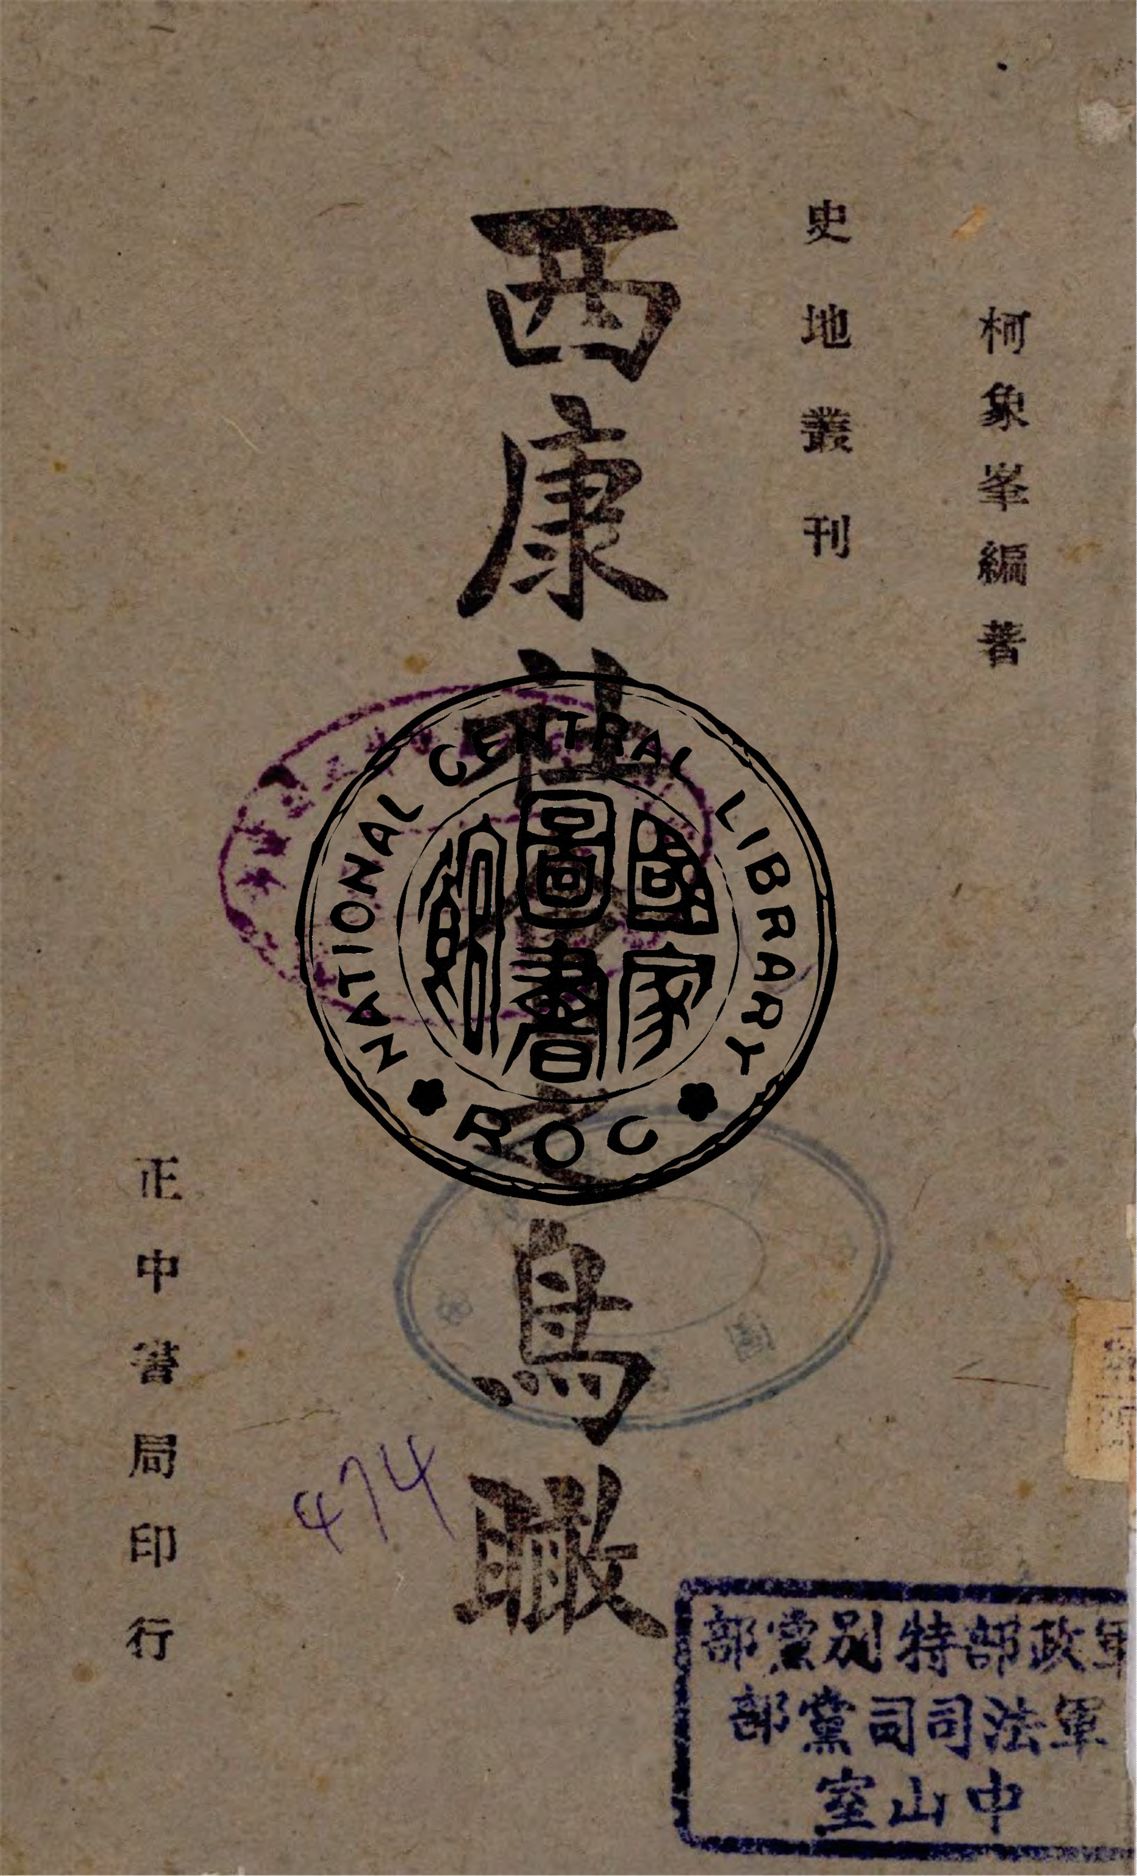 柯象峯編著
史地叢刊
西康社會之鳥瞰
正中書局印行
NATIONAL CENTRAL LIBRARY
ROC
國家圖書館
474
軍政部特別黨部
軍法司司黨部
中山室